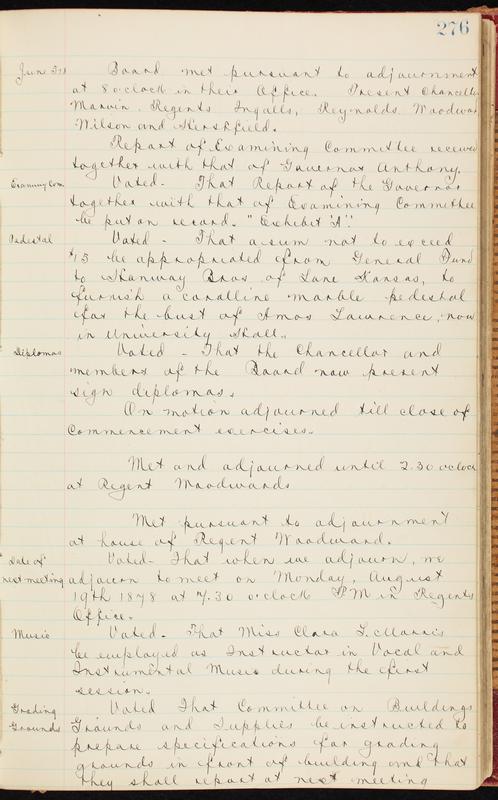 276
June 3rd Board met pursuant to adjournment
at 8 o'clock in their Office. Present Chancellor
Marvin. Regents Ingalls, Reynolds Woodward
Wilson and Hershfield.
Report of Examining Committee received
together with that of Governor Anthony.
Examing Com Voted - That Report of the Governor
together with that of Examining Committee
be put on record. "Exhibit 'A'."
Pedestal Voted - That a sum not to exceed
$15 be appropriated from General Fund
to Bros. of Lane Kansas, to
furnish a coralline marble pedestal
for the bust of Amos Lawrence, now
in University Hall.
Diplomas Voted - That the Chancellor and
members of the Board now present
sign diplomas.
On motion adjourned till close of
Commencement exercises.
Met and adjourned until 2.30 oclock
at Regent Woodwards
Met pursuant to adjournment
at house of Regent Woodward.
Date of Voted - That when we adjourn, we
next meeting adjourn to meet on Monday, August
19th 1878 at 7.30 o'clock P.M in Regents
Office.
Music Voted - That Miss Clara L. Morris
be employed as Instructor in Vocal and
Instrumental Music during the first
session.
Grading Voted That Committee on Buildings
Grounds Grounds and Supplies be instructed to
prepare specifications for grading
grounds in front of building and that
they shall report at next meeting